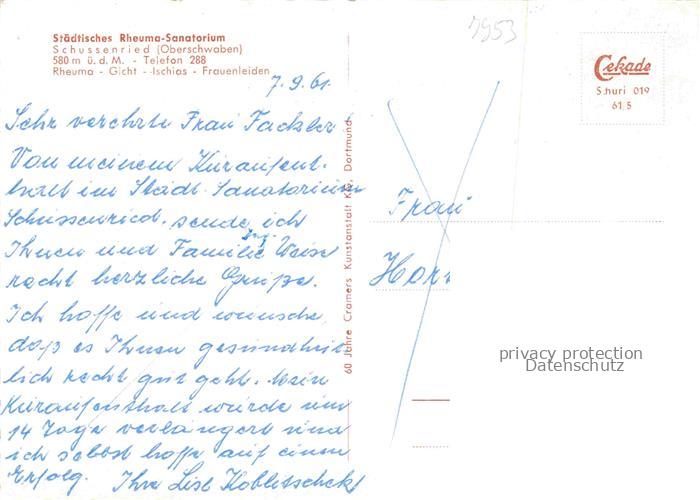 Städtisches Rheuma-Sanatorium
Schussenried (Oberschwaben)
580 m ü. d. M. - Telefon 288
Rheuma - Gicht - Ischias - Frauenleiden
7.9.61.
Sehr verehrte Frau Fackler!
Von meinem Kuraufent-
halt im Städt. Sanatorium
Schussenried, sende ich
Ihnen und Familie Weise
recht herzliche Grüße.
Ich hoffe und wünsche,
daß es Ihnen gesundheit-
lich recht gut geht. Mein
Kuraufenthalt wurde um
14 Tage verlängert und
ich selbst hoffe auf einen
Erfolg. Ihre Lisl Koblitschek
60 Jahre Cramers Kunstanstalt KG, Dortmund
7953
Cekade
Schuri 019
61.5
Frau
privacy protection
Datenschutz